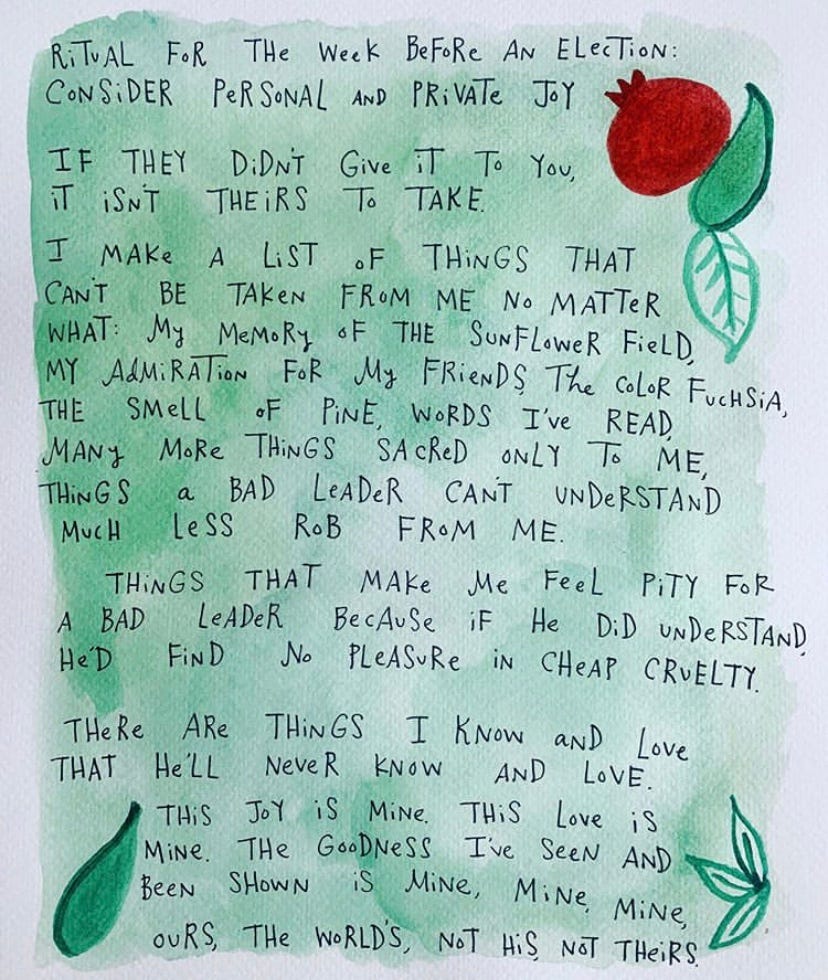 RITUAL FOR THE WEEK BEFORE AN ELECTION:
CONSIDER PERSONAL AND PRIVATE JOY
IF THEY DIDN'T GIVE IT TO YOU,
IT ISN'T THEIRS TO TAKE.
I MAKE A LIST OF THINGS THAT
CAN'T BE TAKEN FROM ME NO MATTER
WHAT: MY MEMORY OF THE SUNFLOWER FIELD,
MY ADMIRATION FOR MY FRIENDS, THE COLOR FUCHSIA,
THE SMELL OF PINE, WORDS I'VE READ,
MANY MORE THINGS SACRED ONLY TO ME,
THINGS a BAD LEADER CAN'T UNDERSTAND
MUCH LESS ROB FROM ME.
THINGS THAT MAKE ME FEEL PITY FOR
A BAD LEADER BECAUSE IF HE DID UNDERSTAND,
HE'D FIND NO PLEASURE IN CHEAP CRUELTY.
THERE ARE THINGS I KNOW AND LOVE
THAT HE'LL NEVER KNOW AND LOVE.
THIS JOY IS MINE. THIS LOVE IS
MINE. THE GOODNESS I'VE SEEN AND
BEEN SHOWN IS MINE, MINE, MINE,
OURS, THE WORLD'S, NOT HIS, NOT THEIRS.